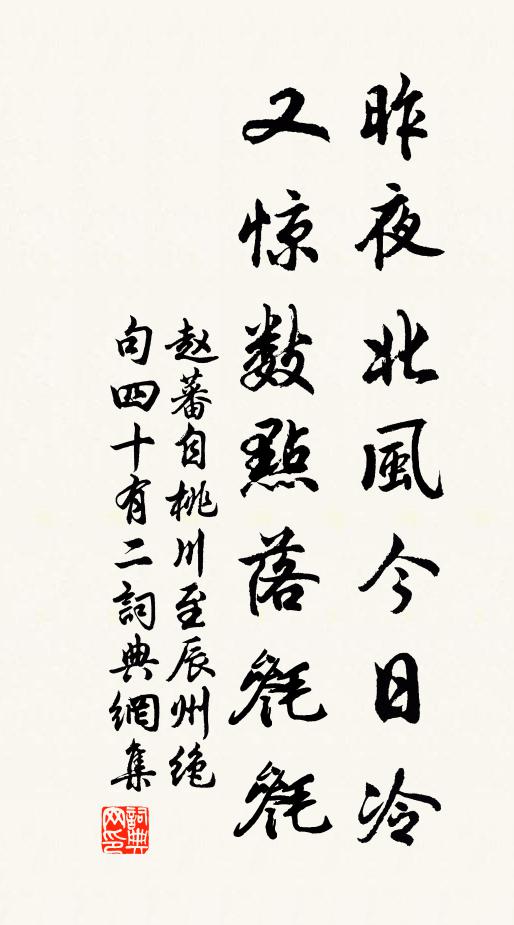 昨夜北風今日冷
又惊數點落毿毿
赵蕃自桃川至辰州绝
句四十有二詞典網集
詞典
网印